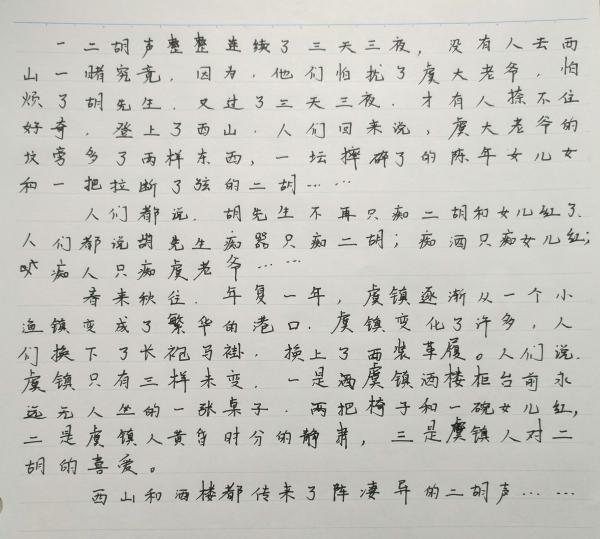 一二胡声整整连续了三天三夜，没有人去西
山一睹究竟，因为，他们怕扰了虞大老爷，怕
烦了胡先生．又过了三天三夜．才有人捺不住
好奇．登上了西山．人们回来说，虞大老爷的
坟旁多了两样东西，一坛摔碎了的陈年女儿女
和一把拉断了弦的二胡……
人们都说．胡先生不再只痴二胡和女儿红了．
人们都说胡先生痴器只痴二胡；痴酒只痴女儿红；
痴人只痴虞老爷……
春来秋往．年复一年，虞镇逐渐从一个小
渔镇变成了繁华的港口．虞镇变化了许多，人
们换下了长袍马褂．换上了西装革履。人们说．
虞镇只有三样未变．一是酒虞镇酒楼柜台前永
远无人坐的一张桌子．两把椅子和一碗女儿红，
二是虞镇人黄昏时分的静肃，三是虞镇人对二
胡的喜爱。
西山和酒楼都传来了阵凄异的二胡声……